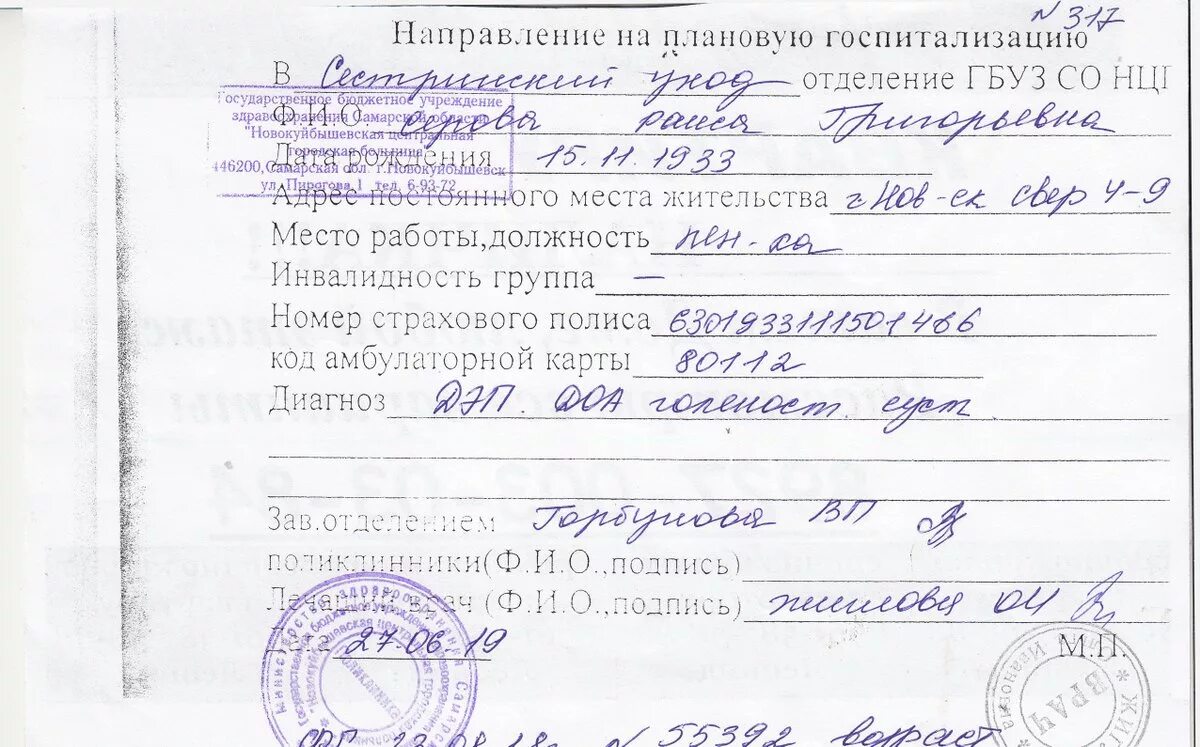 N 317
Направление на плановую госпитализацию
В Сестринский уход отделение ГБУЗ СО НЦГ
Государственное бюджетное учреждение
здравоохранения Самарской области
"Новокуйбышевская центральная
городская больница"
446200, Самарская обл. г.Новокуйбышевск
ул. Пирогова,1 тел. 6-93-72
Ф.И.О Раиса Григорьевна
Дата рождения 15.11.1933
Адрес постоянного места жительства г.Нов-ск свер 4-9
Место работы,должность пен-ка
Инвалидность группа —
Номер страхового полиса 6301933111501466
код амбулаторной карты 80112
Диагноз ДЭП. ДОА голеност. суст
Зав.отделением Горбунова ВП
поликлинники(Ф.И.О.,подпись)
Лечащий врач (Ф.И.О.,подпись) Жилова ОИ
Дата 27.06.19
М.П.
Министерство здравоохранения
ВРАЧ
N 55392 возраст